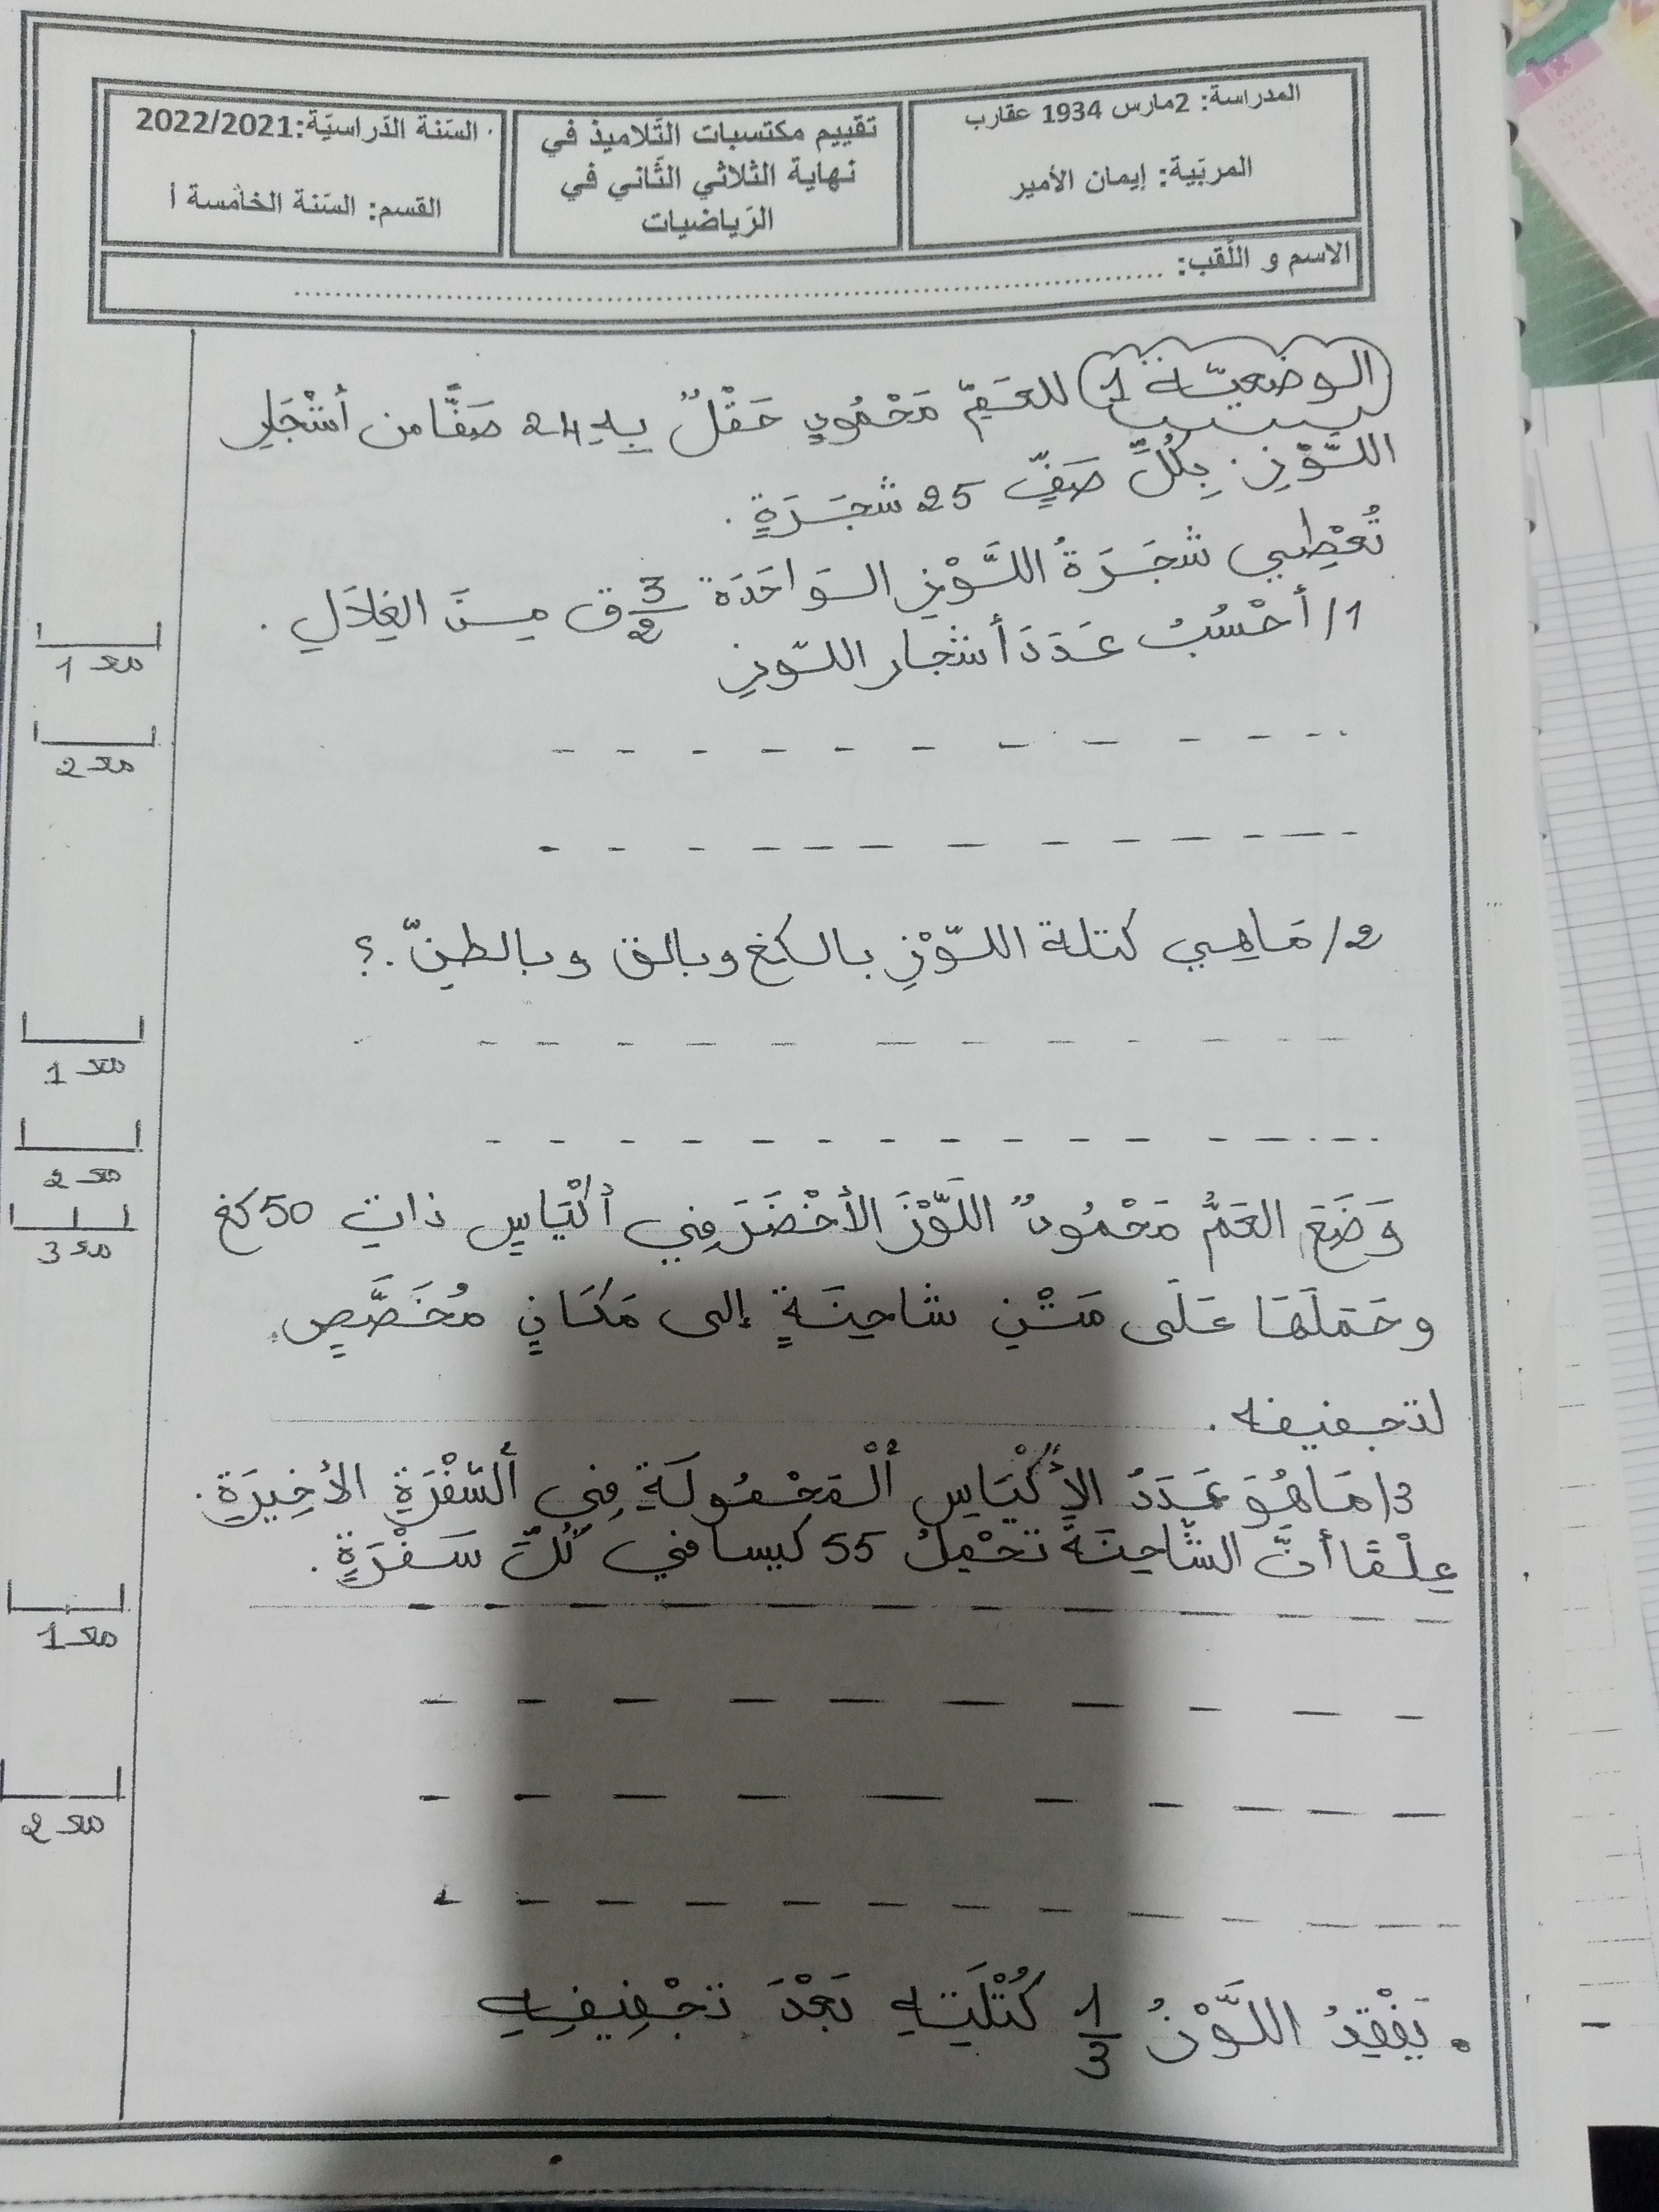 المدراسة: 2مارس 1934 عقارب
المربّية: إيمان الأمير
تقييم مكتسبات التّلاميذ في
نهاية الثلاثي الثّاني في
الرّياضيات
السّنة الدّراسيّة:2022/2021
القسم: السّنة الخامسة أ
الاسم و اللّقب: ................................................
الوضعيّة 1 للعَمِّ مَحْمُودٍ حَقْلٌ بِهِ 24 صَفًّا من أشْجَارِ
اللَّوْزِ. بِكُلِّ صَفٍّ 25 شَجَرَةٍ.
تُعْطِي شَجَرَةُ اللَّوْزِ الوَاحَدَة 3/2 ق مِنَ الغِلاَلِ.
1/ أحْسُبُ عَدَدَ أشجار اللّوزِ
2/ مَاهِي كتلة اللّوْزِ بالكغ وبالق وبالطنّ.؟
وَضَعَ العَمُّ مَحْمُودٌ اللَّوْزَ الأخْضَرَ فِي أكْيَاسٍ ذاتِ 50 كغ
وحَمَلَهَا عَلَى مَتْنِ شاحِنَةٍ إلى مَكَانٍ مُخَصَّصٍ
لتجفيفه.
3/ مَاهُوَ عَدَدُ الأكْيَاسِ ألْمَحْمُولَةِ فِي ألسَّفْرَةِ الأخِيرَةِ.
عِلْمًا أنَّ الشَّاحِنَةَ تَحْمِلُ 55 كيسا في كُلِّ سَفْرَةٍ.
• يَفْقِدُ اللَّوْزُ 1/3 كُتْلَتِهِ بَعْدَ تَجْفِيفِهِ
مع 1
مع 2
مع 1
مع 2
مع 3
مع 1
مع 2